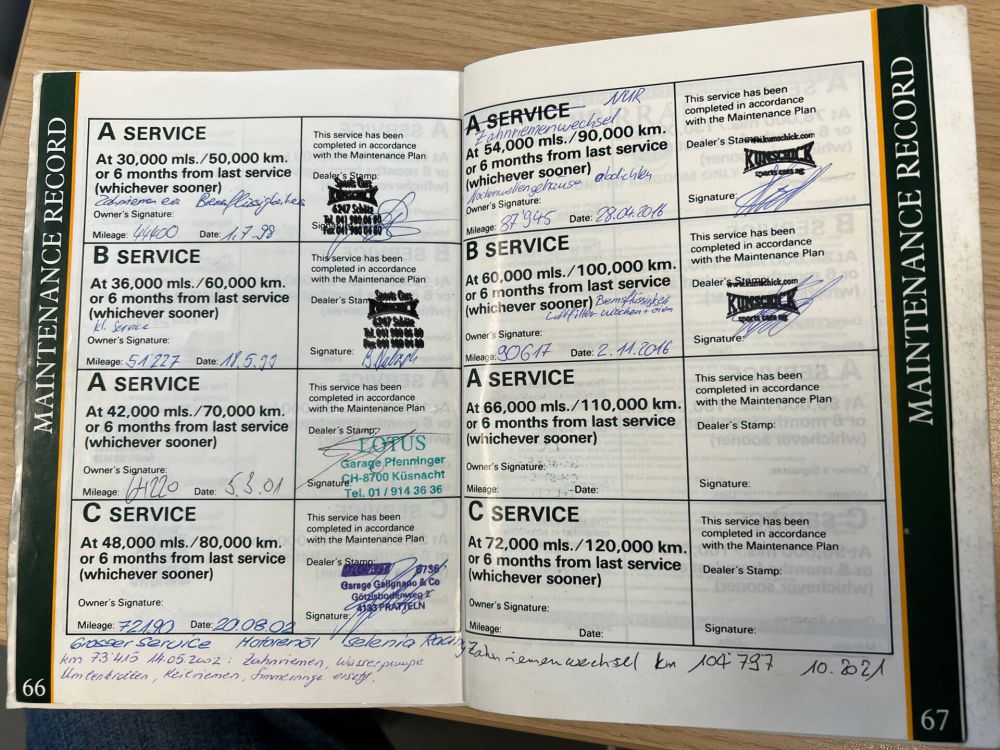 MAINTENANCE RECORD
A SERVICE
At 30,000 mls./50,000 km.
or 6 months from last service
(whichever sooner)
Bremsflüssigkeit
Owner's Signature:
Mileage: 44400 Date: 1.7.98
This service has been
completed in accordance
with the Maintenance Plan
Dealer's Stamp:
Sports Cars
KUNSCHICK
6247 Schötz
Tel. 041 980 04 80
Fax 041 980 04 80
Signature:
B SERVICE
At 36,000 mls./60,000 km.
or 6 months from last service
(whichever sooner)
kl. Service
Owner's Signature:
Mileage: 51227 Date: 18.5.99
This service has been
completed in accordance
with the Maintenance Plan
Dealer's Stamp:
Sports Cars
KUNSCHICK
6247 Schötz
Signature:
A SERVICE
At 42,000 mls./70,000 km.
or 6 months from last service
(whichever sooner)
Owner's Signature:
Mileage: Date: 5.3.01
This service has been
completed in accordance
with the Maintenance Plan
Dealer's Stamp:
LOTUS
Garage Pfenninger
CH-8700 Küsnacht
Tel. 01 / 914 36 36
Signature:
C SERVICE
At 48,000 mls./80,000 km.
or 6 months from last service
(whichever sooner)
Owner's Signature:
Mileage: 72190 Date: 20.08.02
This service has been
completed in accordance
with the Maintenance Plan
Dealer's Stamp:
Garage Galignano & Co
Götzisbodenweg 2
4133 PRATTELN
Signature:
Grosser Service Motorenöl Selenia Racing
km 73'415 14.05.2002: Zahnriemen, Wasserpumpe
Keilriemen, Simmerringe ersetzt.
66
MAINTENANCE RECORD
A SERVICE NUR
Zahnriemenwechsel
At 54,000 mls./90,000 km.
or 6 months from last service
(whichever sooner)
Nockenwellengehäuse abdichten
Owner's Signature:
Mileage: 87'945 Date: 28.04.2016
This service has been
completed in accordance
with the Maintenance Plan
Dealer's Stamp:
www.kunschick.com
KUNSCHICK
sports cars ag
Signature:
B SERVICE
At 60,000 mls./100,000 km.
or 6 months from last service
(whichever sooner) Bremsflüssigkeit
Luftfilter waschen + ölen
Owner's Signature:
Mileage: 90617 Date: 2.11.2016
This service has been
completed in accordance
with the Maintenance Plan
Dealer's Stamp:
www.kunschick.com
KUNSCHICK
sports cars ag
Signature:
A SERVICE
At 66,000 mls./110,000 km.
or 6 months from last service
(whichever sooner)
Owner's Signature:
Mileage: Date:
This service has been
completed in accordance
with the Maintenance Plan
Dealer's Stamp:
Signature:
C SERVICE
At 72,000 mls./120,000 km.
or 6 months from last service
(whichever sooner)
Owner's Signature:
Mileage: Date:
This service has been
completed in accordance
with the Maintenance Plan
Dealer's Stamp:
Signature:
Zahnriemenwechsel km 104'797 10.2021
67